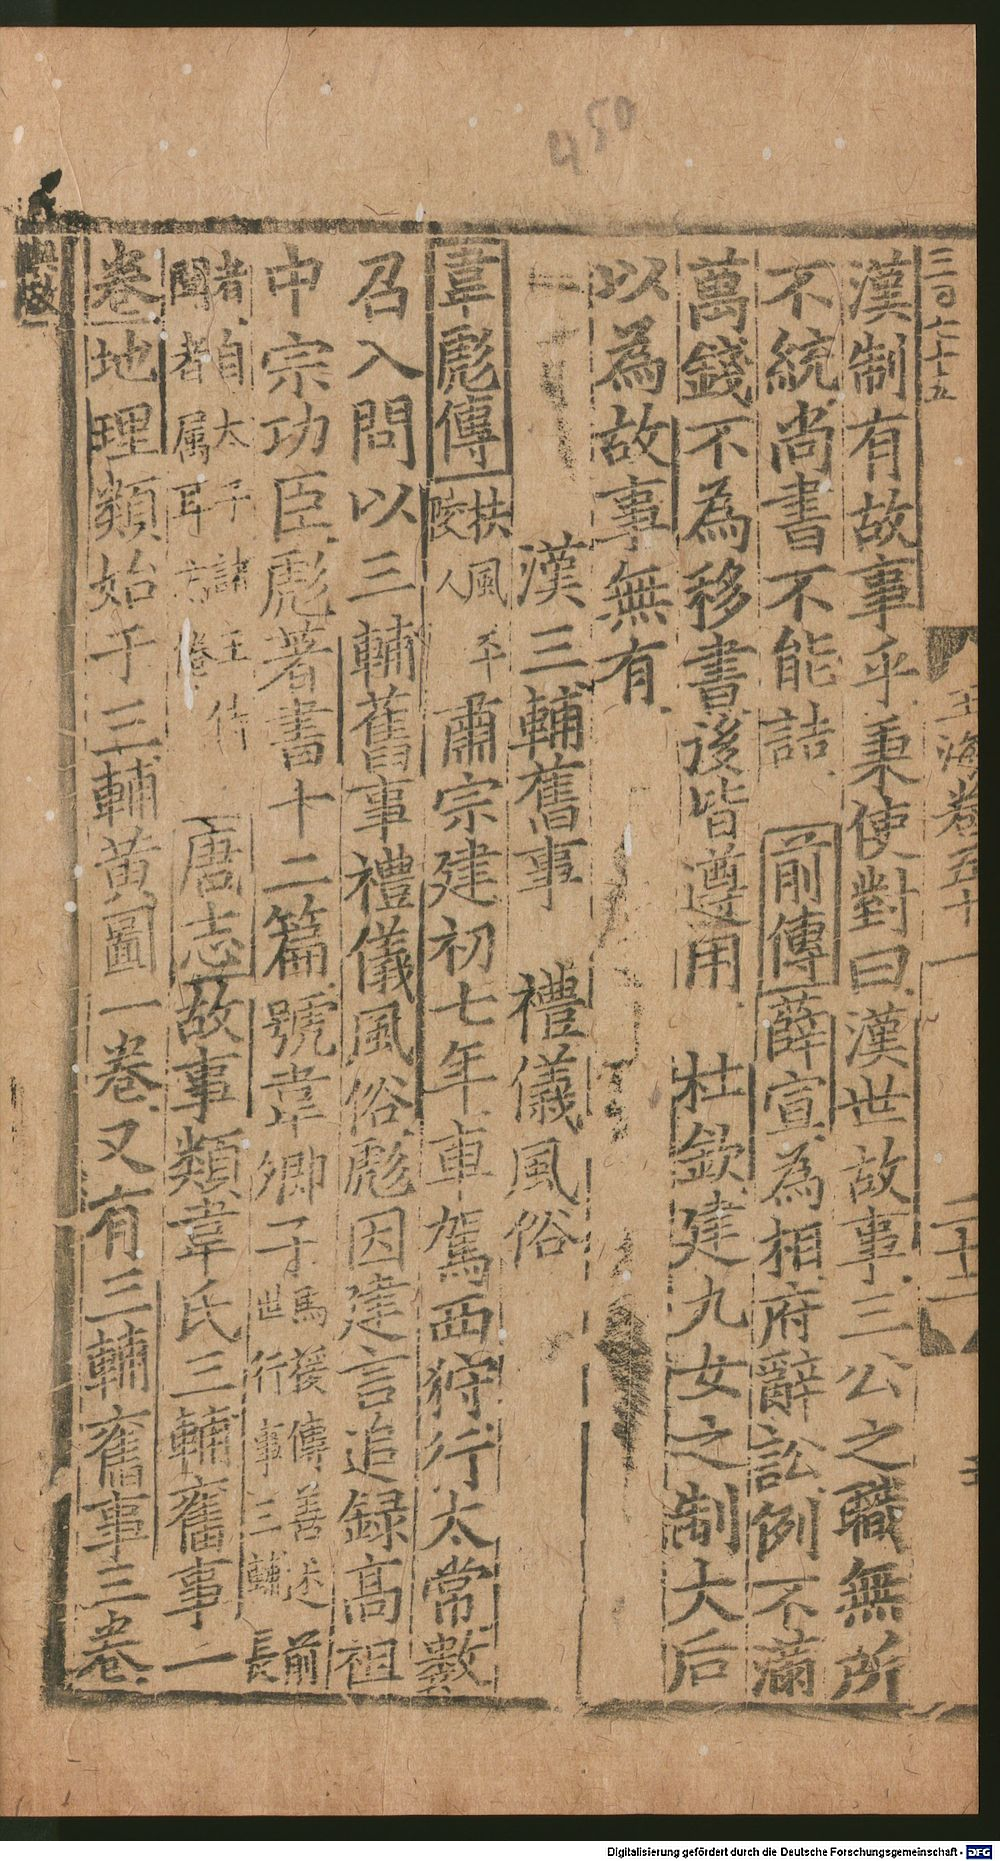 450
三百七十五
玉海卷五十一
二十一
漢制有故事乎秉使對曰漢世故事三公之職無所
不統尚書不能詰 前傳薛宣為相府辭訟例不滿
萬錢不為移書後皆遵用 杜欽建九女之制大后
以為故事無有
漢三輔舊事 禮儀風俗
韋彪傳扶風平陵人肅宗建初七年車駕西狩行太常數
召入問以三輔舊事禮儀風俗彪因建言追録高祖
中宗功臣彪著書十二篇號韋卿子馬援傳善述前世行事三輔長
者自太子諸王侍聞者属耳忘倦 唐志故事類韋氏三輔舊事一
卷地理類始于三輔黄圖一卷又有三輔舊事三卷
Digitalisierung gefördert durch die Deutsche Forschungsgemeinschaft - DFG